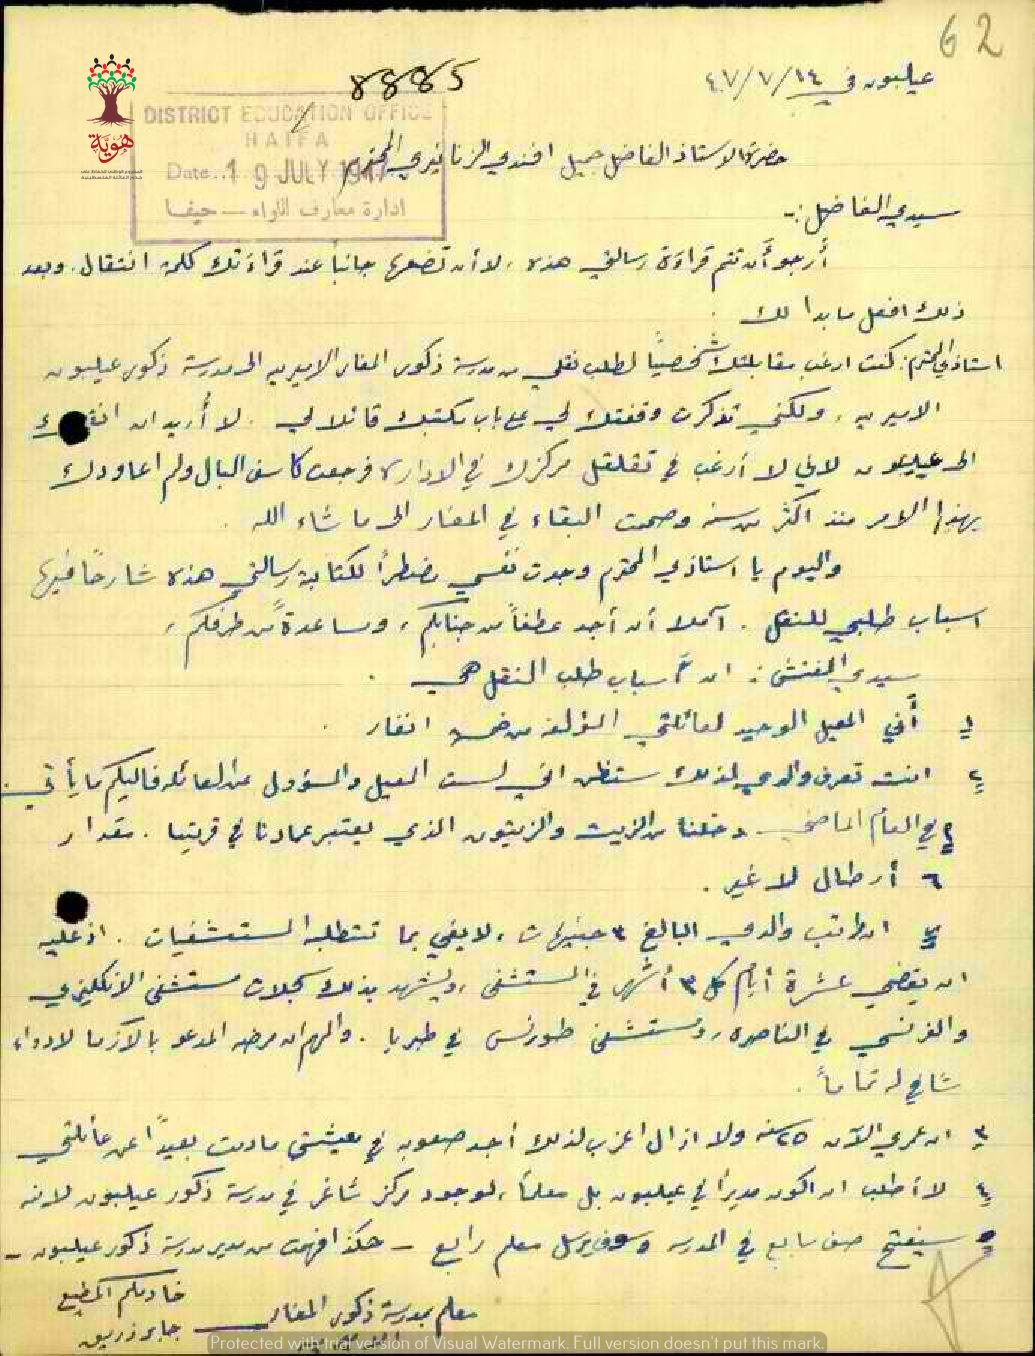 62
8885
عيلبون في ١٤/٧/٤٧
DISTRICT EDUCATION OFFICE
HAIFA
Date.. 19 JULY 1947
ادارة معارف اللواء — حيفا
هوية
حضرة الاستاذ الفاضل جميل افندي الزنانيري المحترم
سيدي الفاضل :-
أرجو أن تتم قراءة رسالتي هذه ، لا أن تضعها جانباً عند قراءتك كلمة انتقال . وبعد
ذلك افعل ما بدا لك .
استاذي المحترم : كنت ارغب مقابلتك شخصياً لطلب نقلي من مدرسة ذكور المغار الاميريه الى مدرسة ذكور عيلبون
الاميريه ، ولكني تذكرت وقفتك لي على باب مكتبك قائلا لي . لا أريد ان
الى عيلبون لاني لا أرغب في تقلقل مركزك في الادارة فرجعت كاسف البال ولم اعاودك
بهذا الامر منذ اكثر من سنه وصممت البقاء في المغار الى ما شاء الله .
واليوم يا استاذي المحترم وجدت نفسي مضطراً لكتابة رسالتي هذه شارحاً فيها
اسباب طلبي للنقل . آملا أن أجد عطفاً من جنابكم ، ومساعدة من طرفكم ،
سيدي المفتش : ان أسباب طلب النقل هي .
١ أني المعيل الوحيد لعائلتي المؤلفة من خمسة انفار .
٢ انت تعرف والدي لذلك ستظن اني لست المعيل والمسؤول عن العائله فاليكم ما يأتي :
في العام الماضي دخلنا من الزيت والزيتون الذي يعتبر عمادنا في قريتنا . مقدار
٦ أرطال لا غير .
ان راتب والدي البالغ ٣ جنيهات ، لا يفي بما تتطلبه المستشفيات . اذ عليه
ان يقضي عشرة أيام كل ٣ أشهر في المستشفى ، ويشهد بذلك سجلات مستشفى الانكليزي
والفرنسي في الناصره ، ومستشفى طورنس في طبريا . والمهم ان مرضه المدعو بالأزما لا دواء
شافي له تماماً .
٣ ان عمري الآن ٢٥ سنه ولا ازال اعزب لذلك أجد صعوبه في معيشتي مادمت بعيداً عن عائلتي
٤ لا أطلب ان اكون مديراً في عيلبون بل معلماً ، لوجود مركز شاغر في مدرسة ذكور عيلبون لانه
سيفتح صف سابع في المدرسه وسوف يرسل معلم رابع - هكذا فهمت من مدير مدرسة ذكور عيلبون -
خادمكم المطيع
معلم بمدرسة ذكور المغار
جابر زريق
Protected with trial version of Visual Watermark. Full version doesn't put this mark.